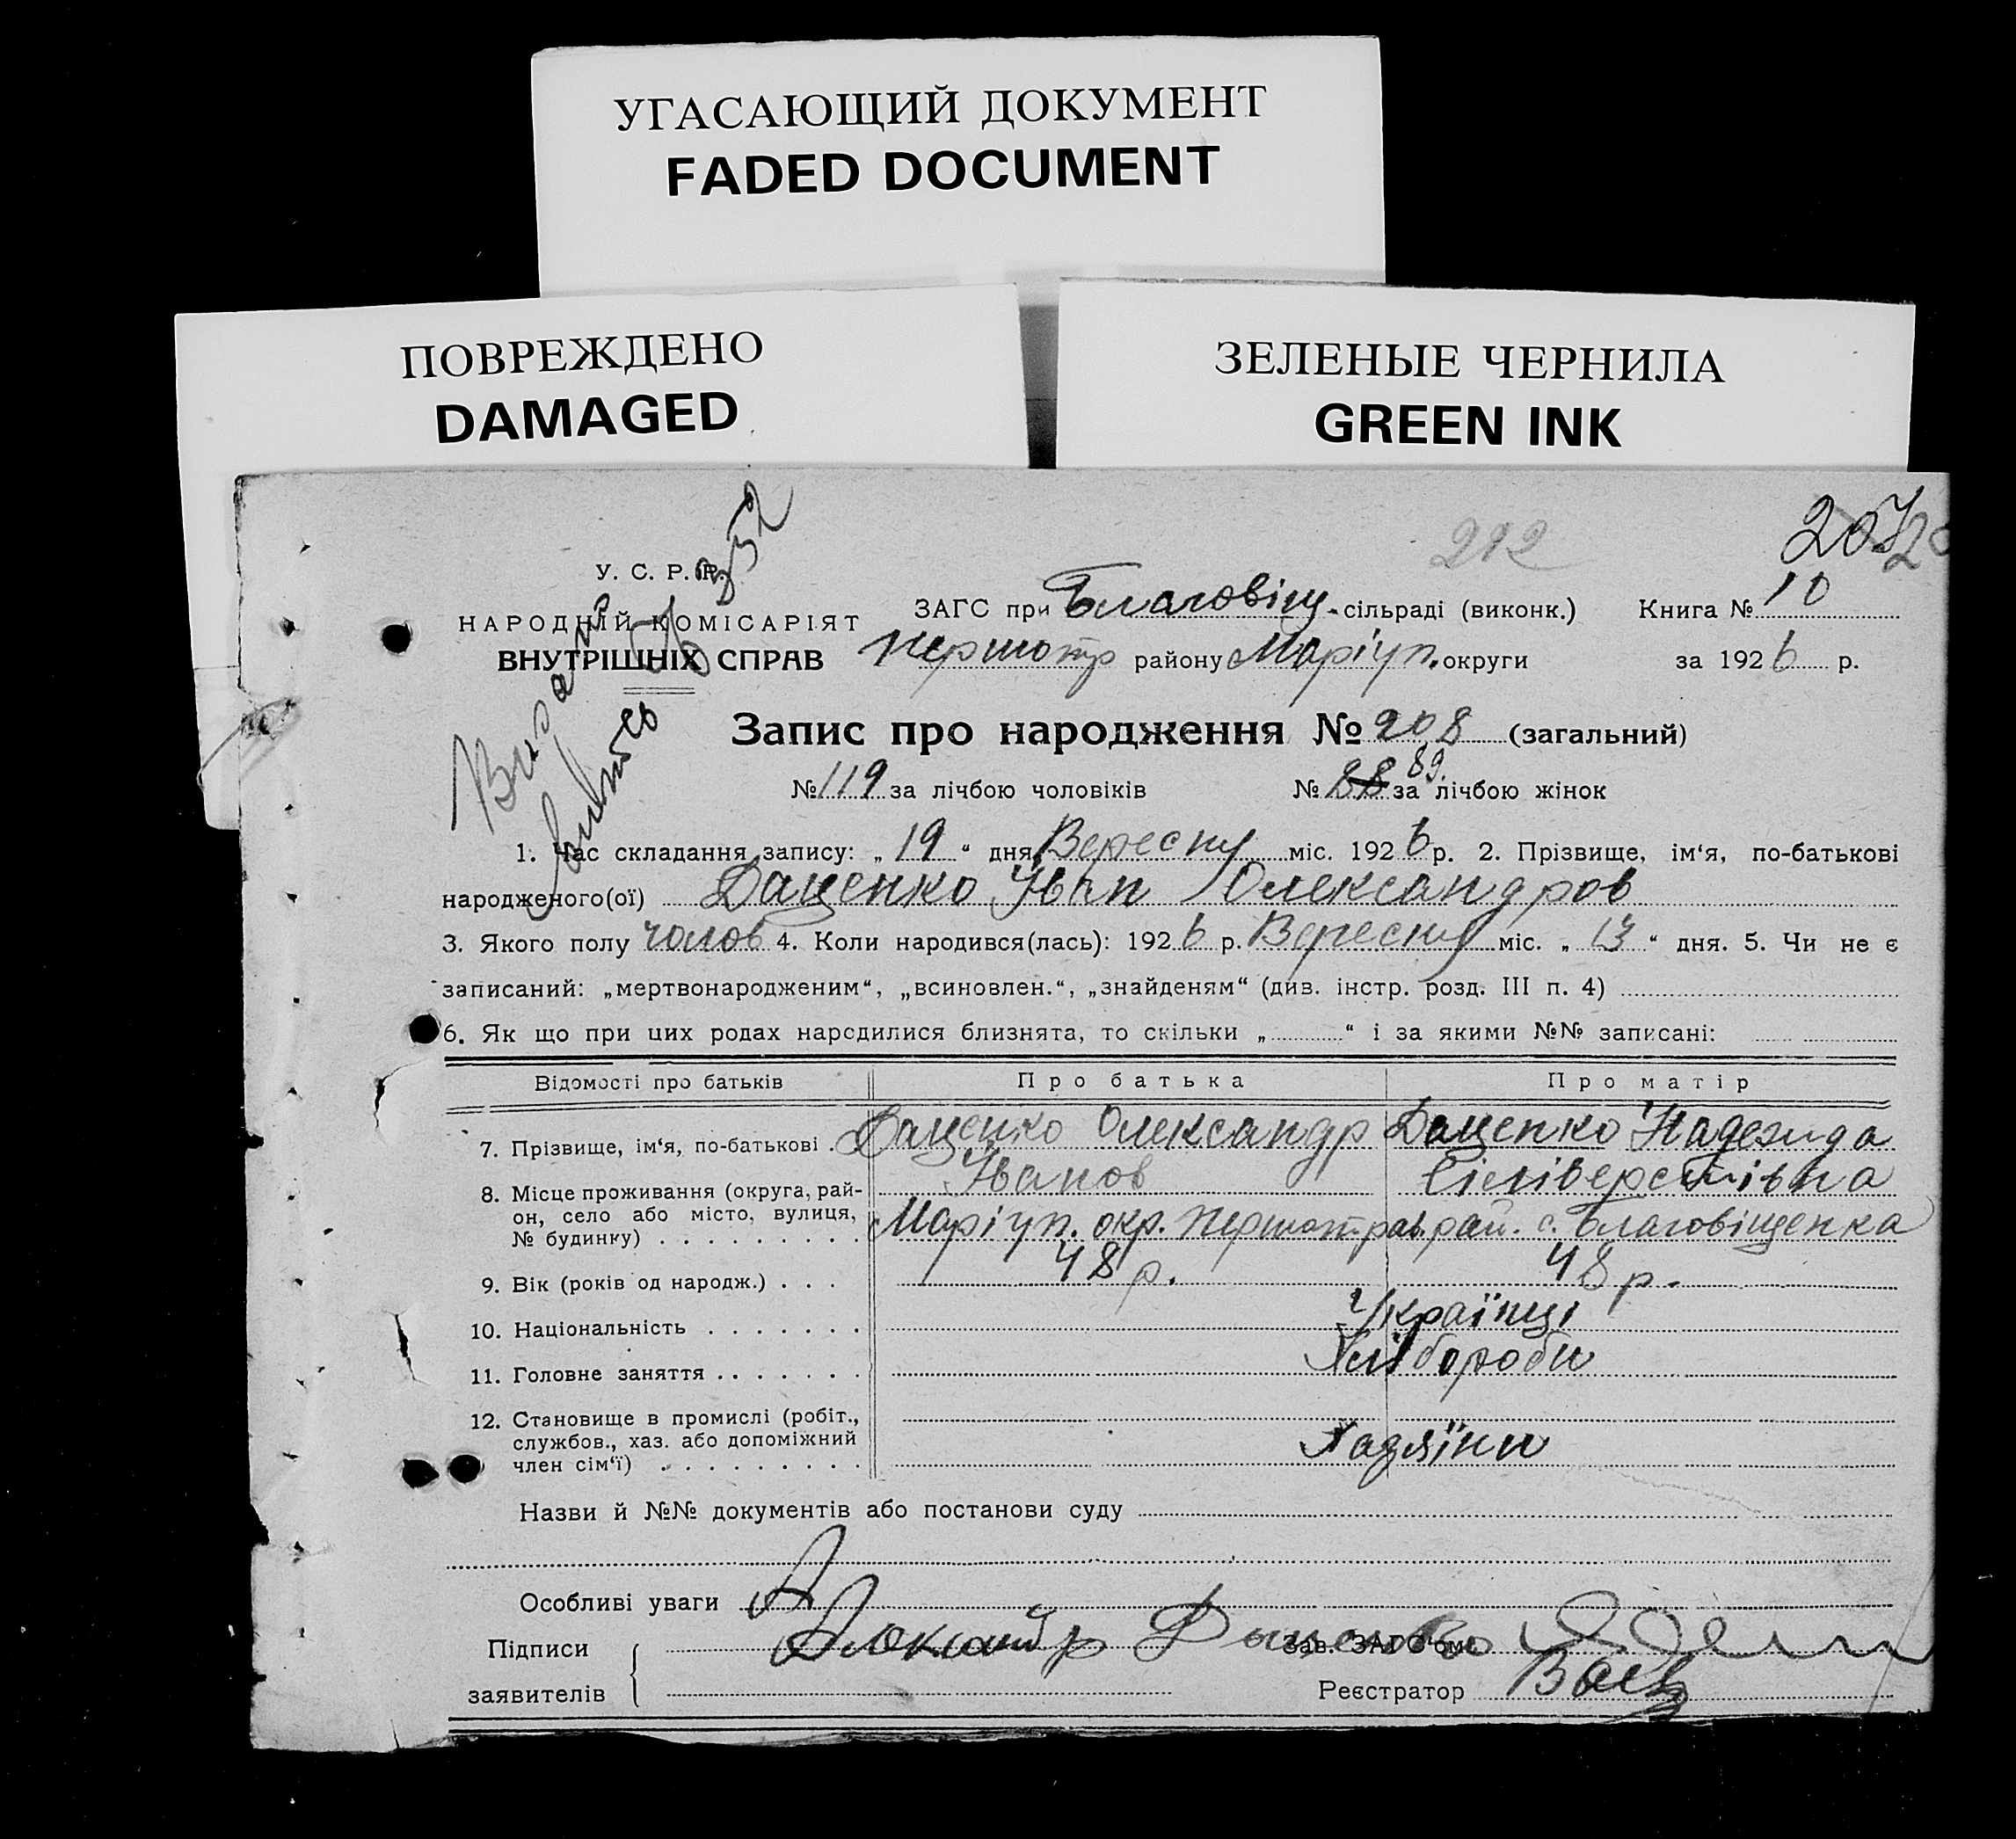 УГАСАЮЩИЙ ДОКУМЕНТ
FADED DOCUMENT
ПОВРЕЖДЕНО
DAMAGED
ЗЕЛЕНЫЕ ЧЕРНИЛА
GREEN INK
212
У. С. Р. Р.
НАРОДНІЙ КОМІСАРІЯТ
ВНУТРІШНІХ СПРАВ
ЗАГС при Благовіщ. сільраді (виконк.) Книга № 10
Першотр району Маріуп. округи за 1926 р.
Запис про народження № 208 (загальний)
№ 119 за лічбою чоловіків № 88 89. за лічбою жінок
1. Час складання запису: „ 19 “ дня Вересня міс. 1926 р. 2. Прізвище, ім‘я, по-батькові
народженого(ої) Даценко Іван Олександров
3. Якого полу чолов 4. Коли народився(лась): 1926 р. Вересня міс. „ 13 “ дня. 5. Чи не є
записаний: „мертвонародженим“, „всиновлен.“, „знайденям“ (див. інстр. розд. III п. 4)
6. Як що при цих родах народилися близнята, то скільки „ “ і за якими №№ записані:
Відомості про батьків Про батька Про матір
7. Прізвище, ім‘я, по-батькові . Даценко Олександр Даценко Надежда
Іванов Сіліверстівна
8. Місце проживання (округа, рай-
он, село або місто, вулиця,
№ будинку) . . . . . . . . . Маріуп. окр. Першотрав. рай. с. Благовіщенка
9. Вік (років од народж.) . . . 48 р. 48 р.
10. Національність . . . . . . . Українці
11. Головне заняття . . . . . . . Хлібороби
12. Становище в промислі (робіт.,
службов., хаз. або допоміжний
член сім‘ї) . . . . . . . . . Хазяїни
Назви й №№ документів або постанови суду
Особливі уваги
Підписи
заявителів
Зав. ЗАГС‘ом
Реєстратор